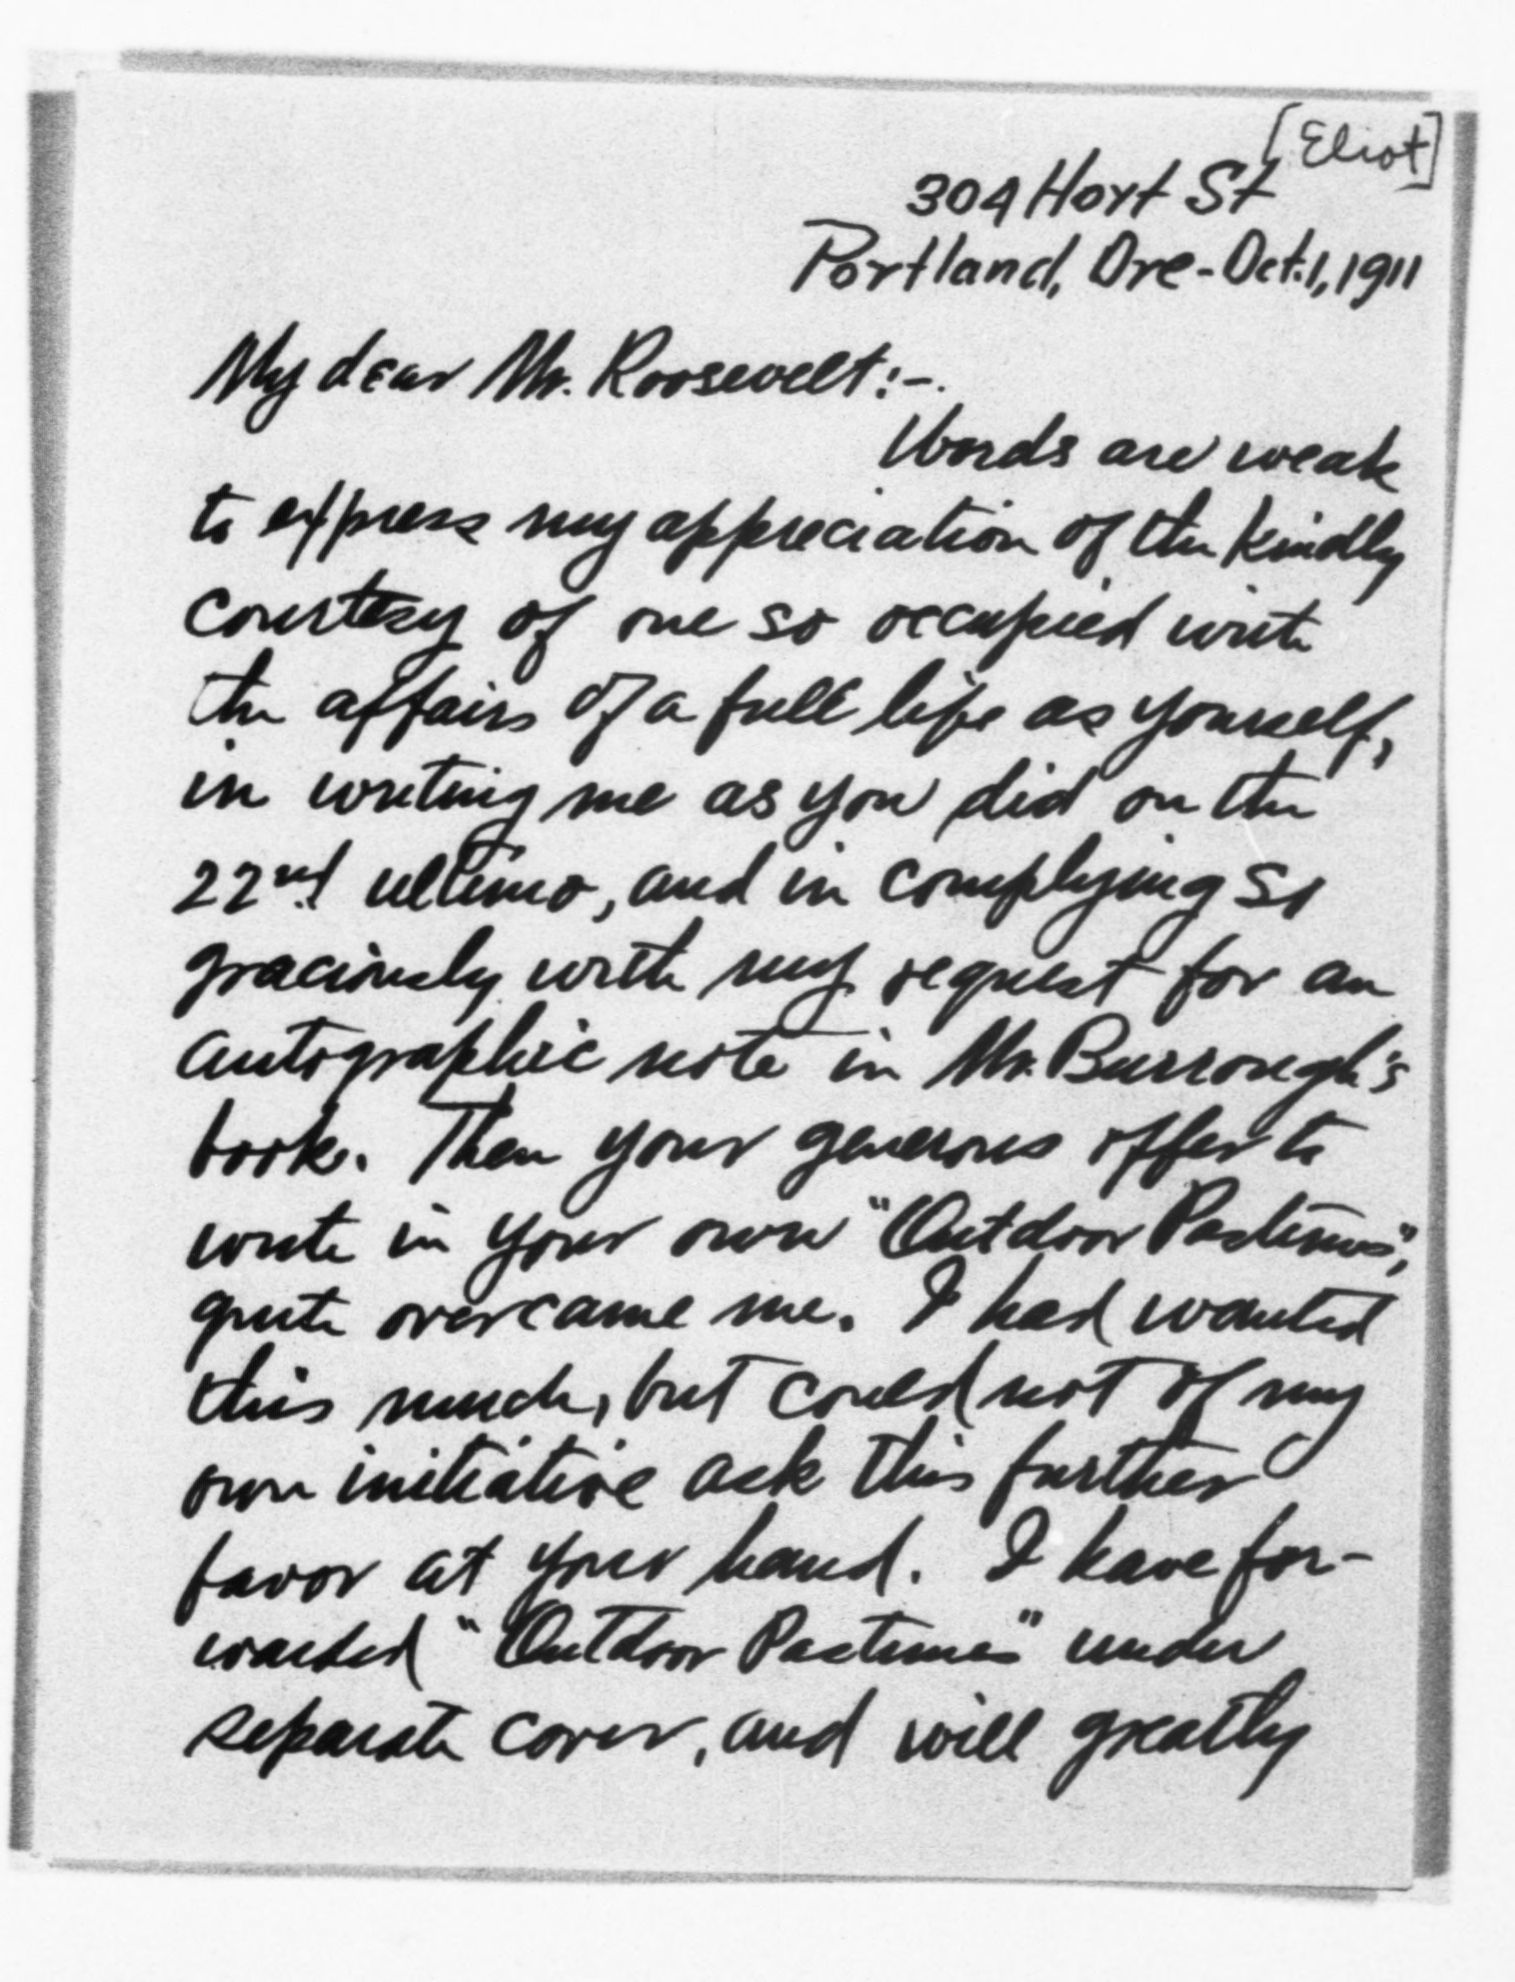 [Eliot]
304 Hort St
Portland, Ore - Oct. 1, 1911
My dear Mr. Roosevelt:-.
Words are weak
to express my appreciation of the kindly
courtesy of one so occupied with
the affairs of a full life as yourself,
in writing me as you did on the
22nd ultimo, and in complying so
graciously with my request for an
autographic note in Mr. Burrough's
book. Then your generous offer to
write in your own "Outdoor Pastimes",
quite overcame me. I had wanted
this much, but could not of my
own initiative ask this further
favor at your hand. I have for-
warded "Outdoor Pastimes" under
separate cover, and will greatly